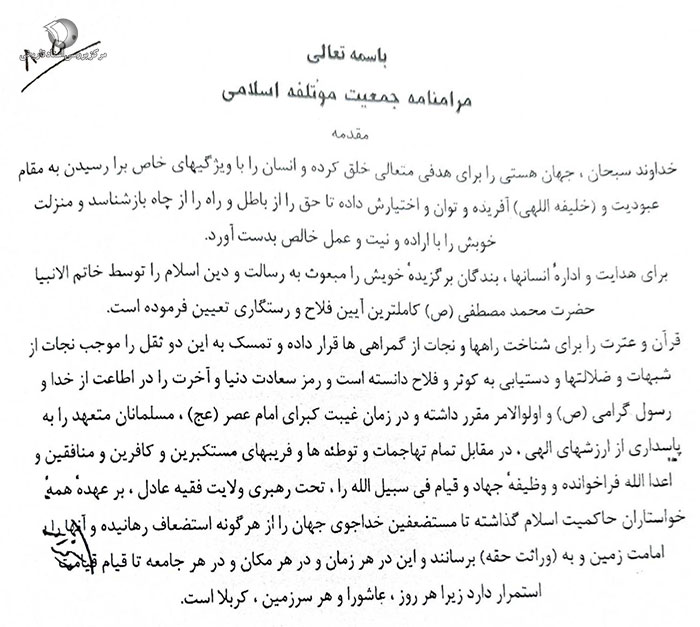 مرکز بررسی اسناد تاریخی
باسمه تعالی
مرامنامه جمعیت موٴتلفه اسلامی
مقدمه
خداوند سبحان ، جهان هستی را برای هدفی متعالی خلق کرده و انسان را با ویژگیهای خاص برا رسیدن به مقام
عبودیت و (خلیفه اللهی) آفریده و توان و اختیارش داده تا حق را از باطل و راه را از چاه بازشناسد و منزلت
خویش را با اراده و نیت و عمل خالص بدست آورد.
برای هدایت و ادارهٴ انسانها ، بندگان برگزیدهٴ خویش را مبعوث به رسالت و دین اسلام را توسط خاتم الانبیا
حضرت محمد مصطفی (ص) کاملترین آیین فلاح و رستگاری تعیین فرموده است.
قرآن و عترت را برای شناخت راهها و نجات از گمراهی ها قرار داده و تمسک به این دو ثقل را موجب نجات از
شبهات و ضلالتها و دستیابی به کوثر و فلاح دانسته است و رمز سعادت دنیا و آخرت را در اطاعت از خدا و
رسول گرامی (ص) و اولوالامر مقرر داشته و در زمان غیبت کبرای امام عصر (عج) ، مسلمانان متعهد را به
پاسداری از ارزشهای الهی ، در مقابل تمام تهاجمات و توطئه ها و فریبهای مستکبرین و کافرین و منافقین و
اعدا الله فراخوانده و وظیفهٴ جهاد و قیام فی سبیل الله را ، تحت رهبری ولایت فقیه عادل ، بر عهدهٴ همهٴ
خواستاران حاکمیت اسلام گذاشته تا مستضعفین خداجوی جهان را از هرگونه استضعاف رهانیده و آنها را به
امامت زمین و به (وراثت حقه) برسانند و این در هر زمان و در هر مکان و در هر جامعه تا قیام قیامت
استمرار دارد زیرا هر روز ، عاشورا و هر سرزمین ، کربلا است.